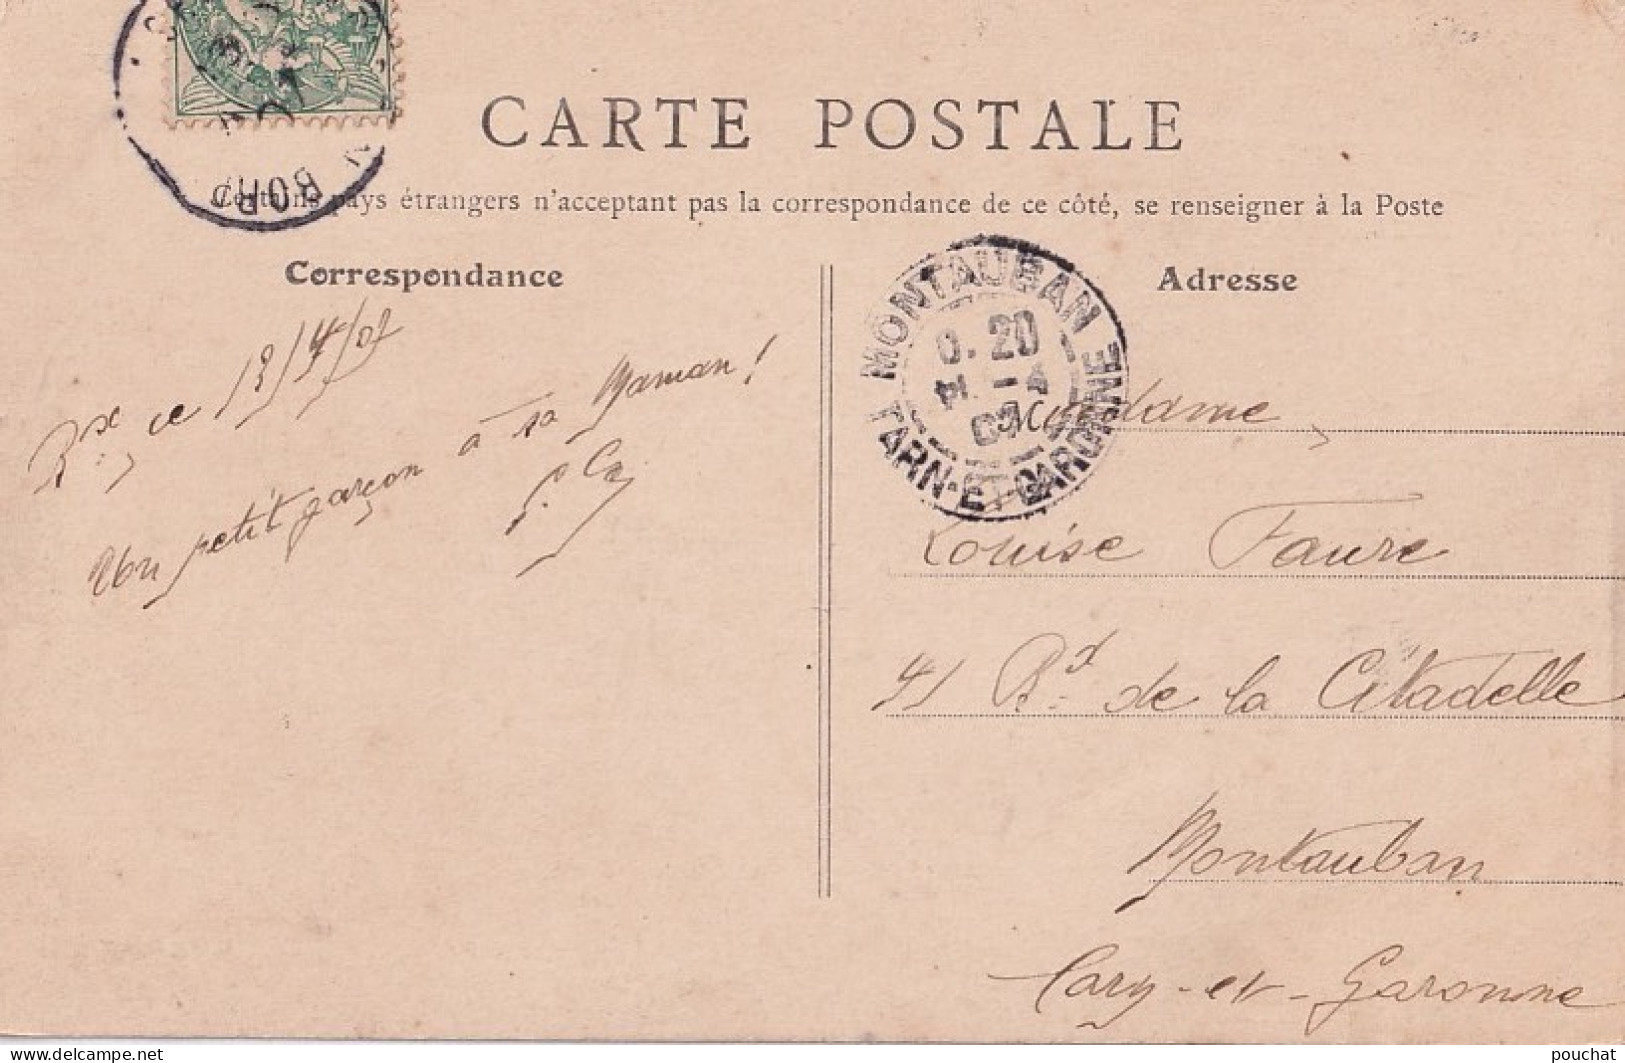 BORD
CARTE POSTALE
Certains pays étrangers n'acceptant pas la correspondance de ce côté, se renseigner à la Poste
Correspondance
Bx ce 13/4/07
Un petit garçon à sa Maman!
MONTAUBAN
0. 20
-4
07
TARN-ET-GARONNE
Adresse
Madame
Louise Faure
41 Bd de la Citadelle
Montauban
Tarn-et-Garonne
pouchat